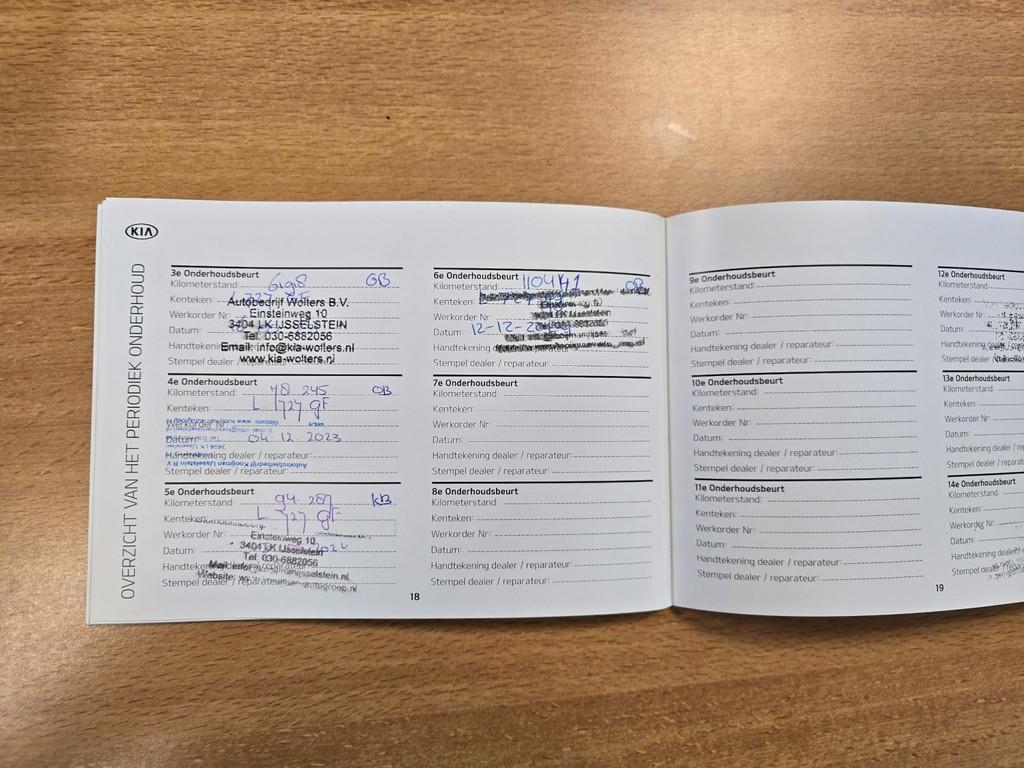 KIA
OVERZICHT VAN HET PERIODIEK ONDERHOUD
3e Onderhoudsbeurt
Kilometerstand: GB
Kenteken:
Autobedrijf Wolters B.V.
Werkorder Nr: Einsteinweg 10
3404 LK IJSSELSTEIN
Datum:
Tel: 030-6882056
Handtekening
Email: info@kia-wolters.nl
Stempel dealer / reparateur:
www.kia-wolters.nl
4e Onderhoudsbeurt
Kilometerstand: 78 245 GB
Kenteken: L 727 GF
Werkorder Nr:
Datum: 04 12 2023
Handtekening dealer / reparateur:
Automobielbedrijf Koogman IJsselstein B.V.
Stempel dealer / reparateur:
5e Onderhoudsbeurt
Kilometerstand: 94.287 KB
Kenteken: L 727 GF
Werkorder Nr: Einsteinweg 10
3404 LK IJsselstein
Datum:
Tel. 030-6882056
Stempel dealer / reparateur:
18
6e Onderhoudsbeurt
Kilometerstand: 110441 GB
Kenteken:
Werkorder Nr:
Datum: 12-12-20
Handtekening
Stempel dealer / reparateur:
7e Onderhoudsbeurt
Kilometerstand:
Kenteken:
Werkorder Nr:
Datum:
Handtekening dealer / reparateur:
Stempel dealer / reparateur:
8e Onderhoudsbeurt
Kilometerstand:
Kenteken:
Werkorder Nr:
Datum:
Handtekening dealer / reparateur:
Stempel dealer / reparateur:
9e Onderhoudsbeurt
Kilometerstand:
Kenteken:
Werkorder Nr:
Datum:
Handtekening dealer / reparateur:
Stempel dealer / reparateur:
10e Onderhoudsbeurt
Kilometerstand:
Kenteken:
Werkorder Nr:
Datum:
Handtekening dealer / reparateur:
Stempel dealer / reparateur:
11e Onderhoudsbeurt
Kilometerstand:
Kenteken:
Werkorder Nr:
Datum:
Handtekening dealer / reparateur:
Stempel dealer / reparateur:
19
12e Onderhoudsbeurt
Kilometerstand:
Kenteken:
Werkorder Nr:
Datum:
Handtekening
Stempel dealer /
13e Onderhoudsbeurt
Kilometerstand:
Kenteken:
Werkorder Nr:
Datum:
Handtekening dealer / repara
Stempel dealer / reparat
14e Onderhoudsbeurt
Kilometerstand:
Kenteken:
Werkorder Nr:
Datum:
Handtekening dealer
Stempel dealer